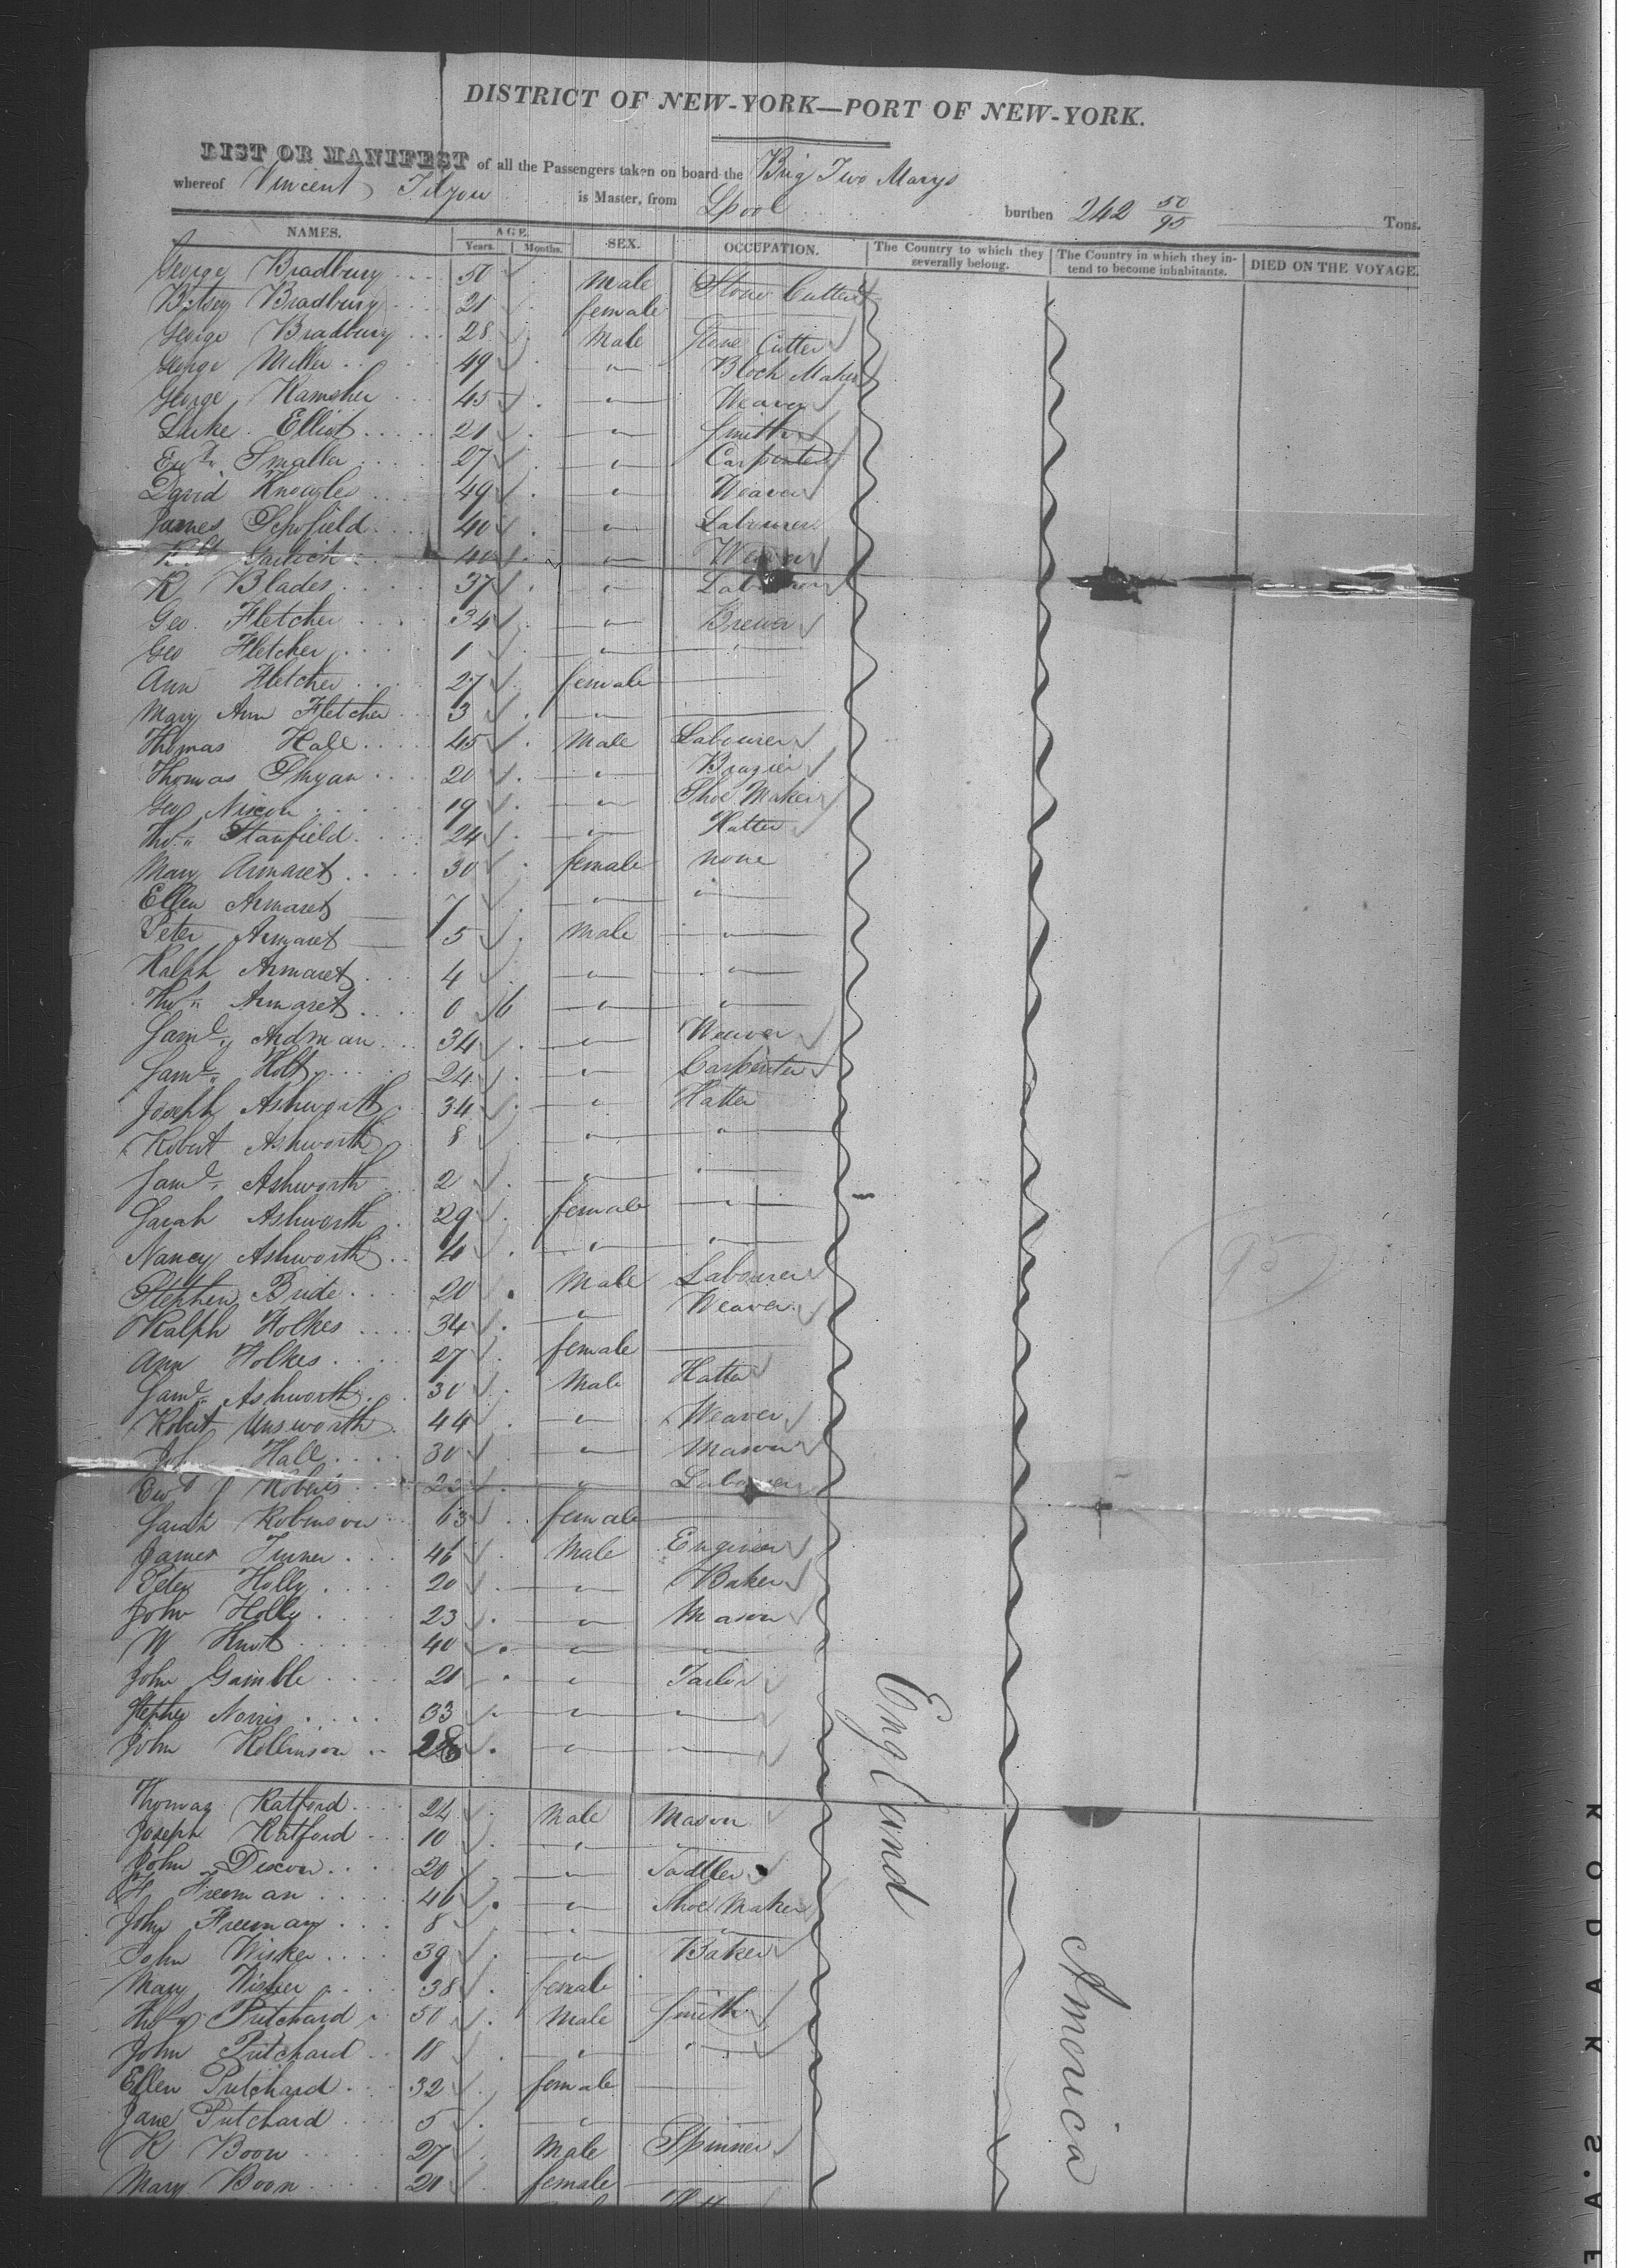 DISTRICT OF NEW-YORK—PORT OF NEW-YORK.
LIST OR MANIFEST of all the Passengers taken on board the Brig Two Marys
whereof Vincent is Master, from Lpool burthen 242 50/95 Tons.
NAMES. AGE. SEX. OCCUPATION. The Country to which they severally belong. The Country in which they intend to become inhabitants. DIED ON THE VOYAGE.
Years. Months.
George Bradbury 50 Male Stone Cutter
Betsey Bradbury 21 female
George Bradbury 28 Male Stone Cutter
George Miller 49 " Block Maker
George 45 " Weaver
Luke Elliot 21 " Smith
Smaller 27 " Carpenter
David Knowles 49 " Weaver
James Schofield 40 " Labourer
40 " Weaver
R Blades 37 " Labourer
Geo. Fletcher 34 " Brewer
Geo Fletcher 1 " "
Ann Fletcher 27 female
Mary Ann Fletcher 3 "
Thomas Hall 45 Male Labourer
Thomas 20 " Brazier
Geo Nixon 19 " Shoe Maker
Tho.s Stanfield 24 " Hatter
Mary Armaret 30 female none
Ellen Armaret 7 " "
Peter Armaret 5 Male "
Ralph Armaret 4 " "
Tho.s Armaret 0 6 " "
Saml. Ardman 34 " Weaver
Saml. Holt 24 " Carpenter
Joseph Ashworth 34 " Hatter
Robert Ashworth 8 " "
Saml. Ashworth 2 " "
Sarah Ashworth 29 female "
Nancy Ashworth 4 " "
Stephen Bride 20 Male Labourer
Ralph Holkes 34 " Weaver
Ann Holkes 27 female
Saml. Ashworth 30 Male Hatter
Robert Unsworth 44 " Weaver
John Hall 30 " Mason
Ewd Roberts " Labourer
Sarah Robinson 63 female
James Turner 46 Male Engineer
Peter Holly 20 " Baker
John Holly 23 " Mason
W Knot 40 " "
John Gamble 21 " Tailor
Stephen Norris 33 " "
John Rollinson 28 "
Thomas Ratford 24 Male Mason
Joseph Ratford 10 " "
John Dixon 20 " Sadler
H Freeman 46 " Shoe Maker
John Freeman 8 " "
John Wisker 39 " Baker
Mary Wisker 38 female
Tho.s Pritchard 50 Male Smith
John Pritchard 18 " "
Ellen Pritchard 32 female
Jane Pritchard 5 "
R Boon 27 Male Spinner
Mary Boon 21 female
England
America
KODAK S.A